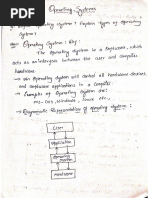 Operating Systems
Operating System : Explain types of Operating
System :
Operating System : Key :
The operating system is a
acts as an interface between the user and computer
hardware
→ An operating system will control all hardware devices
and software applications in a computer
→ Examples of Operating System are:
ms-Dos, windows, Linux etc.,
→ Diagrammatic Representation of operating system :
User
Application
Operating
System
Hardware